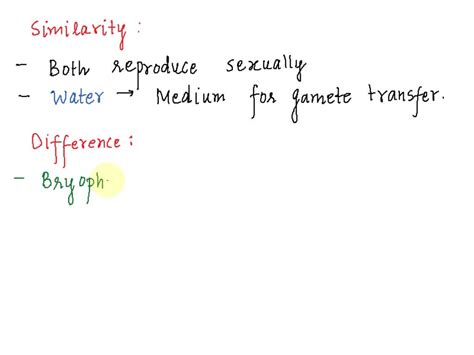 Similarity :
- Both reproduce sexually
- Water → Medium for gamete transfer.
Difference :
- Bryoph